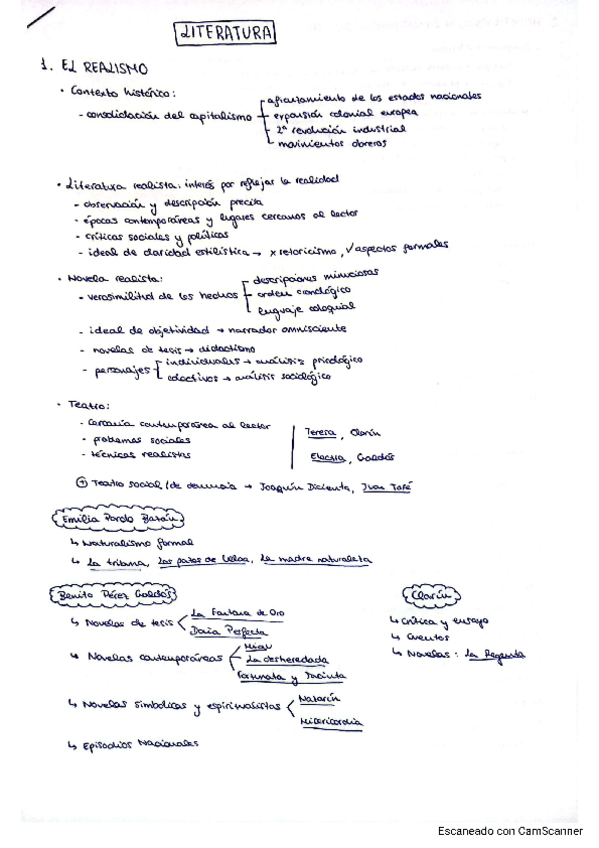 LITERATURA
1. EL REALISMO
· Contexto histórico:
- consolidación del capitalismo
afianzamiento de los estados nacionales
expansión colonial europea
2ª revolución industrial
movimientos obreros
· Literatura realista: interés por reflejar la realidad
- observación y descripción precisa
- épocas contemporáneas y lugares cercanos al lector
- críticas sociales y políticas
- ideal de claridad estilística → x retoricismo, ✓ aspectos formales
· Novela realista:
- verosimilitud de los hechos
descripciones minuciosas
orden cronológico
lenguaje coloquial
- ideal de objetividad → narrador omnisciente
- novelas de tesis → didactismo
- personajes
individuales → análisis psicológico
colectivos → análisis sociológico
· Teatro:
- Cercanía contemporánea al lector
- problemas sociales
- técnicas realistas
Teresa, Clarín
Electra, Galdós
+ Teatro social/de denuncia → Joaquín Dicenta, Juan José
Emilia Pardo Bazán
↳ Naturalismo formal
↳ La tribuna, Los pazos de Ulloa, La madre naturaleza
Benito Pérez Galdós
↳ Novelas de tesis
La Fontana de Oro
Doña Perfecta
↳ Novelas contemporáneas
Miau
La desheredada
Fortunata y Jacinta
↳ Novelas simbólicas y espiritualistas
Nazarín
Misericordia
↳ Episodios Nacionales
Clarín
↳ Crítica y ensayo
↳ Cuentos
↳ Novelas: La Regenta
Escaneado con CamScanner